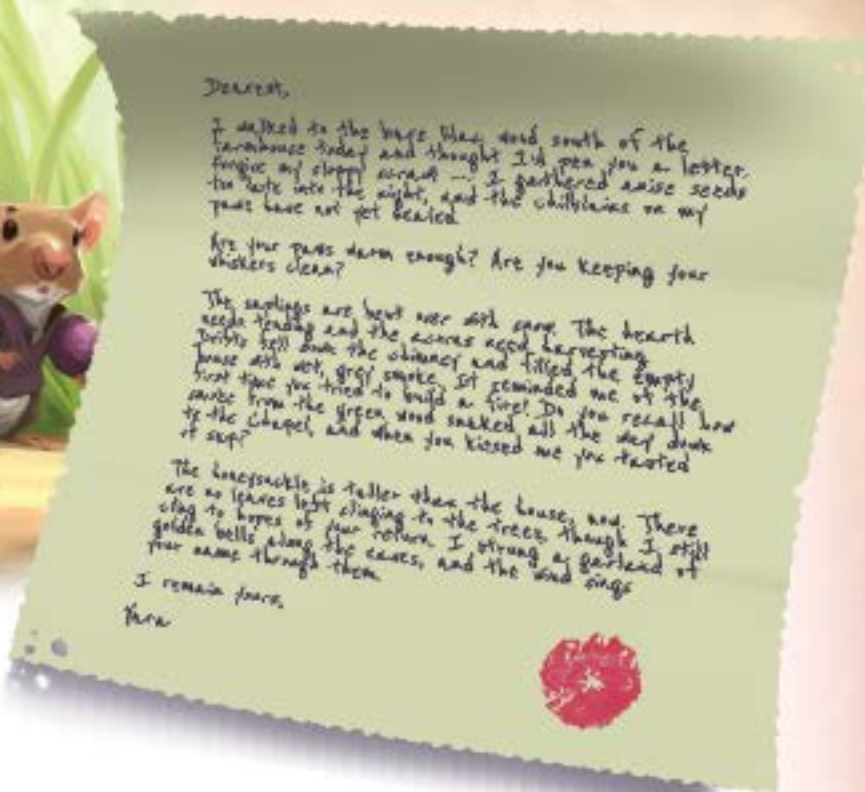 Dearest,
I walked to the huge lilac wood south of the
farmhouse today and thought I'd pen you a letter.
Forgive my sloppy scrawl -- I gathered anise seeds
too late into the night, and the chilblains on my
paws have not yet healed
Are your paws warm enough? Are you keeping your
whiskers clean?
The saplings are bent over with snow. The hearth
needs tending and the acorns need harvesting
Drifts fell down the chimney and filled the empty
house with wet, grey smoke. It reminded me of the
first time you tried to build a fire! Do you recall how
smoke from the green wood snaked all the way down
to the Chapel, and when you kissed me you tasted
of sap?
The honeysuckle is taller than the house, now. There
are no leaves left clinging to the trees, though I still
cling to hopes of your return. I strung a garland of
golden bells along the eaves, and the wind sings
your name through them.
I remain yours,